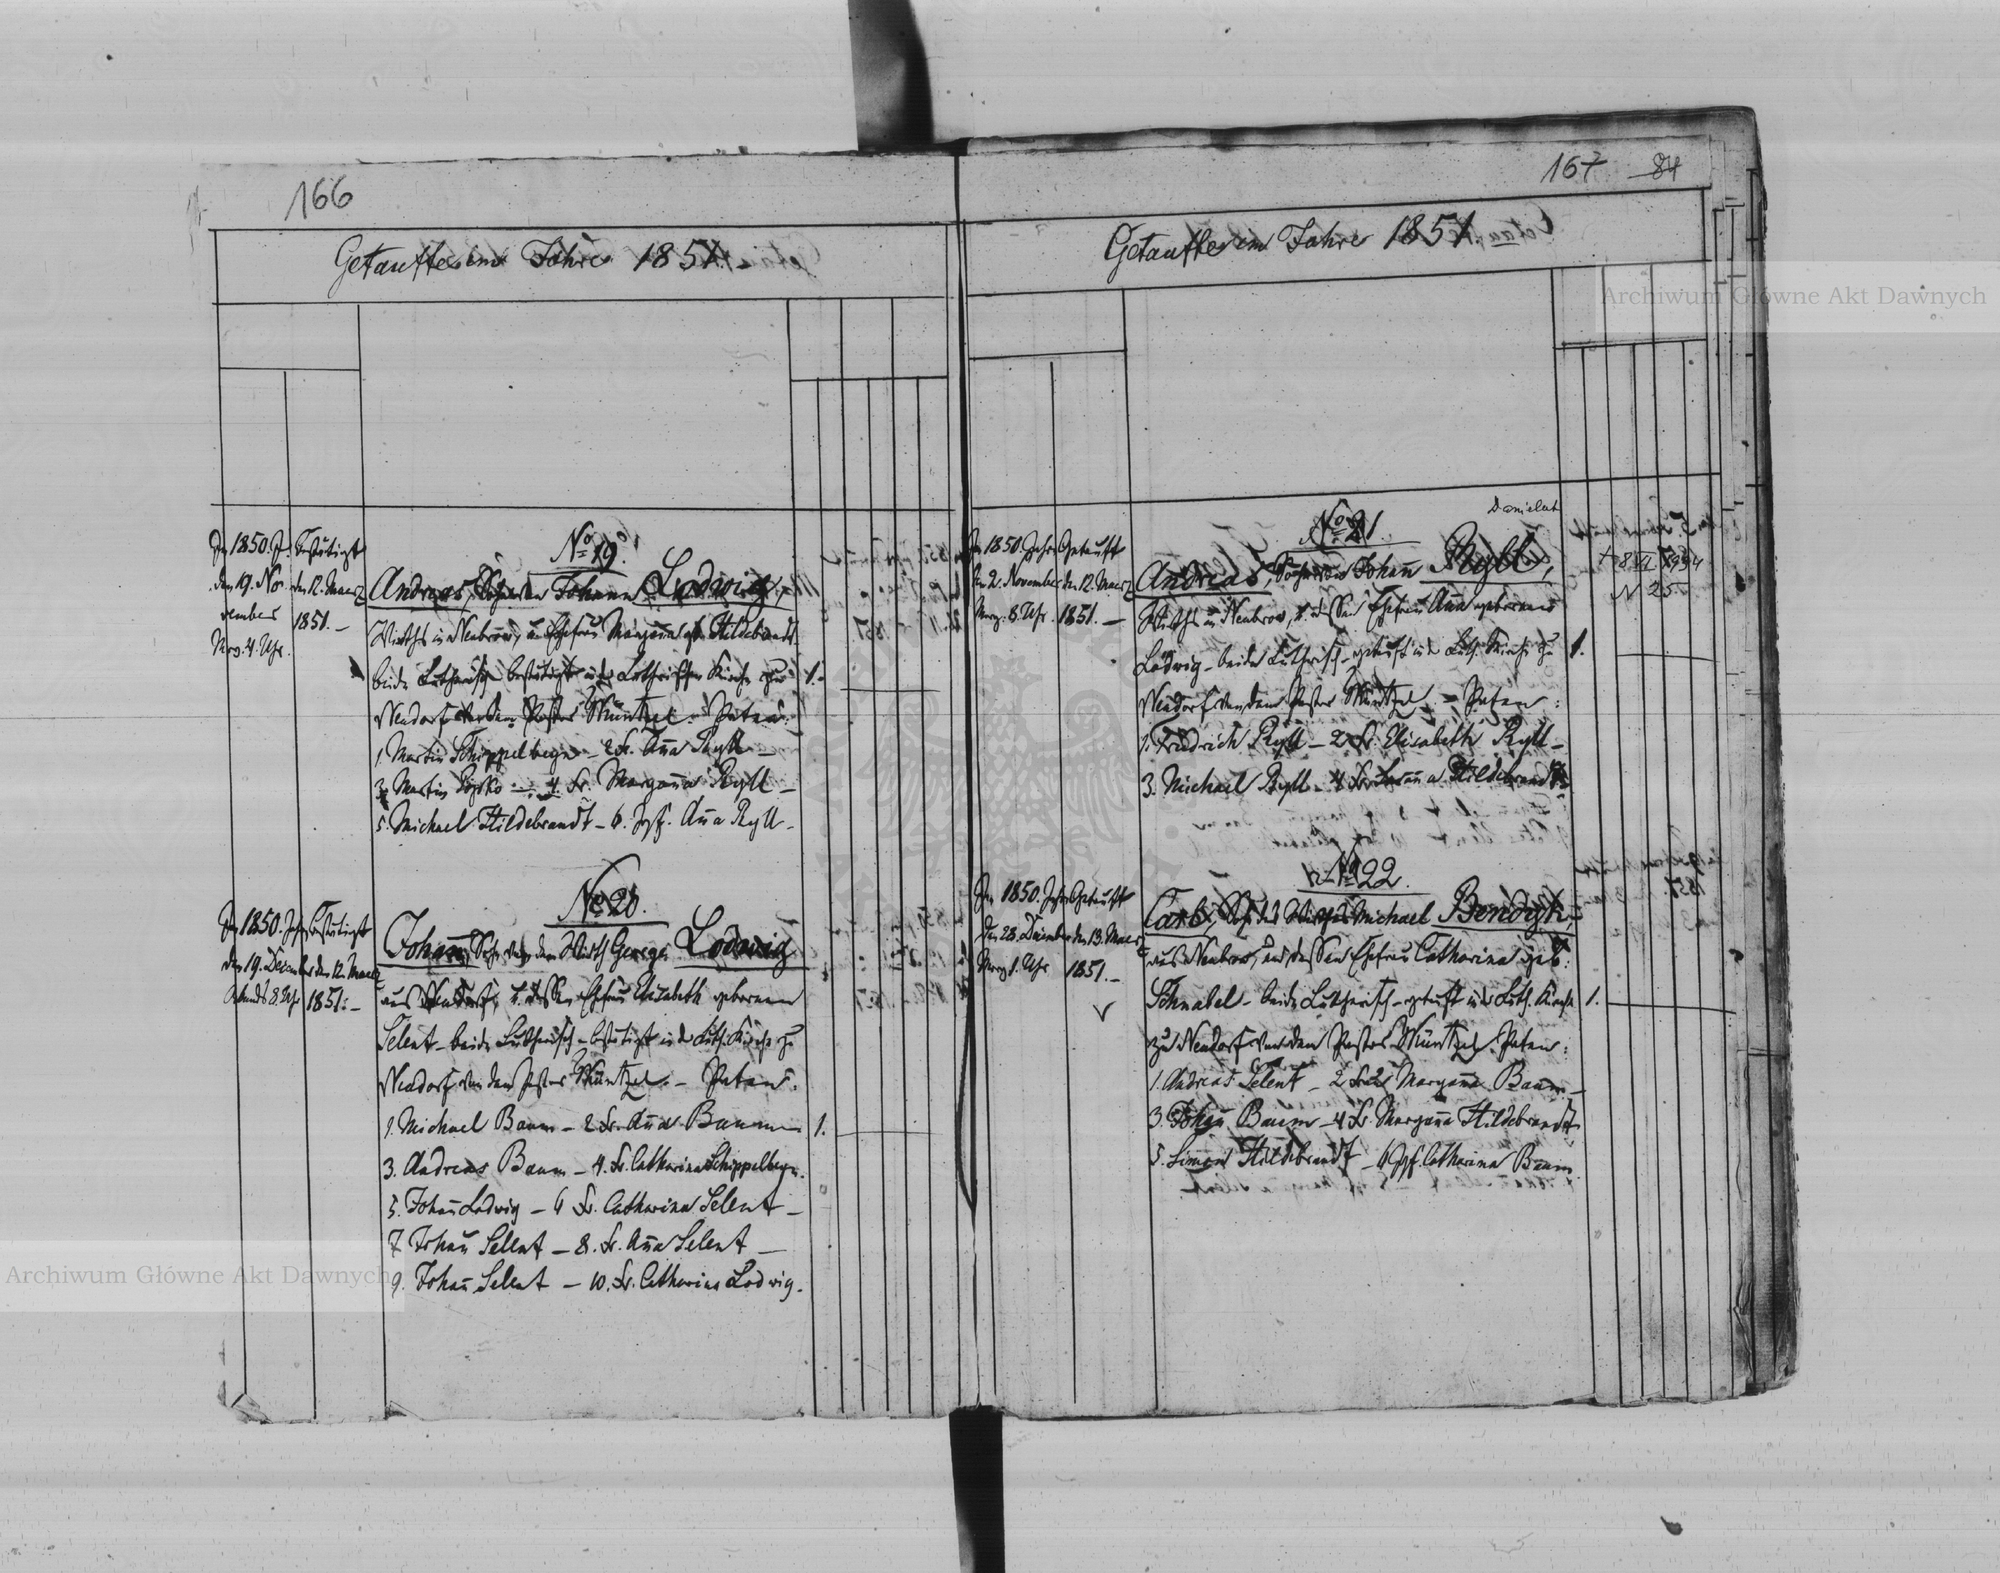 166
Getaufte im Jahre 1851.
Im 1850. J.
den 19. No-
vember
Mrg. 4. Uhr.
Bestätigt
den 12. Maerz
1851. –
No 19.
Andreas, Sohn von Johann Ludwig,
Wirths in Neubrow, u. Ehefrau Marganna geb. Hildebrandt
beide Lutherisch bestätigt in der Lutherischen Kirche zu
Neudorf von dem Pastor Müntzel. – Paten:
1. Martin Schippelbeyn – 2. Fr. Anna Ryll –
3. Martin – 4. Fr. Marganna Ryll –
5. Michael Hildebrandt – 6. Jgf. Anna Ryll –
1.
Im 1850. Jahr
den 19. December
Abends 8. Uhr
Bestätigt
den 12. Maerz
1851. –
No 20.
Johann, Sohn von dem Wirth George Ludwig
aus Neudorf, u. dessen Ehefrau Elisabeth geborenen
Selent – beide Lutherisch – bestätigt in der Luth. Kirche zu
Neudorf von dem Pastor Müntzel. – Paten:
1. Michael Baum – 2. Fr. Anna Baum
3. Andreas Baum – 4. Fr. Catharina Schippelbeyn.
5. Johann Ludwig – 6 Fr. Catharina Selent –
7 Johann Selent – 8. Fr. Anna Selent –
9. Johann Selent – 10. Fr. Catharina Ludwig.
1.
167 84
Getaufte im Jahre 1851
Im 1850. Jahr
den 2. November
Mrg. 8. Uhr.
Getauft
den 12. Maerz
1851. –
No 21.
Andreas, Sohn von Johann Ryll,
Wirths in Neubrow, u. dessen Ehefrau Anna geborenen
Ludwig – beide Lutherisch – getauft in der Luth. Kirche zu
Neudorf von dem Pastor Müntzel – Paten:
1. Friedrich Ryll – 2. Fr. Elisabeth Ryll –
3. Michael Ryll – 4 Fr. Hildebrandt
1.
+ 8 VI 1934
N 25
Im 1850. Jahr
den 28. December
Mrg. 1. Uhr
Getauft
den 13. Maerz
1851. –
No 22.
Carl, Sohn des Wirths Michael Bendyk,
aus Neubrow, und dessen Ehefrau Catharina geb:
Schnabel – beide Lutherisch – getauft in der Luth. Kirche
zu Neudorf von dem Pastor Müntzel. Paten:
1. Andreas Selent – 2 Fr. Marganna Baum –
3. Johann Baum – 4 Fr. Marganna Hildebrandt
5. Simon Hildebrandt – 6 Jgf. Catharina Baum
1.
Archiwum Główne Akt Dawnych
Archiwum Główne Akt Dawnych